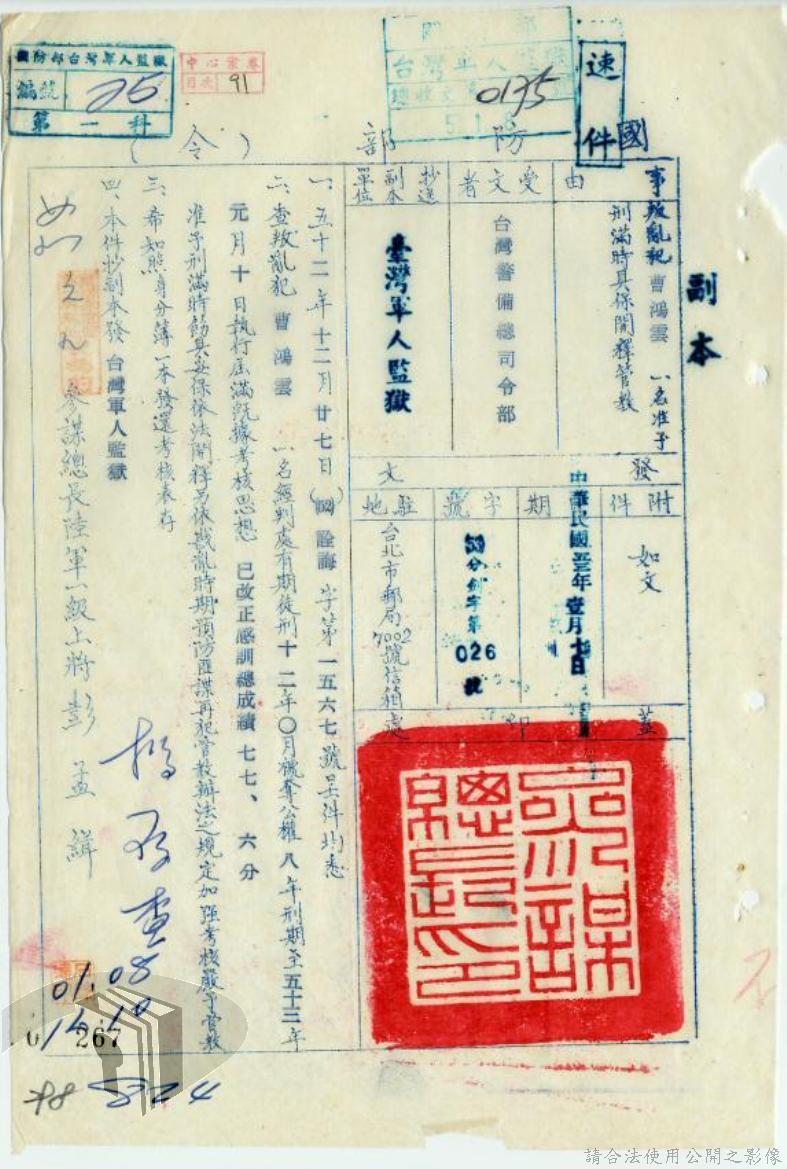 副本
速件
國防部(令)
國防部台灣軍人監獄
編號 25
第一科
中心業務
目次 91
台灣軍人監獄
0175
事由
叛亂犯 曹鴻雲 一名准予
刑滿時具保開釋管教
受文者
台灣警備總司令部
抄送副本單位
臺灣軍人監獄
發文
附件
如文
日期
中華民國五十三年壹月七日
字號
53分創字第
026
號
駐地
台北市郵局
7002
號信箱處
蓋印
參謀總長印
一、五十二年十二月廿七日(國)詮誨字第一五六七號呈件均悉
二、查叛亂犯 曹鴻雲 一名經判處有期徒刑十二年〇月褫奪公權八年刑期至五十三年
元月十日執行屆滿既據考核思想 已改正感訓總成績 七七、六分
准予刑滿時飭具妥保依法開釋另依戡亂時期預防匪諜再犯管教辦法之規定加強考核嚴予管教
三、希知照身分簿一本發還考核表存
四、本件抄副本發 台灣軍人監獄
參謀總長陸軍一級上將彭孟緝
01.08
267
請合法使用公開之影像